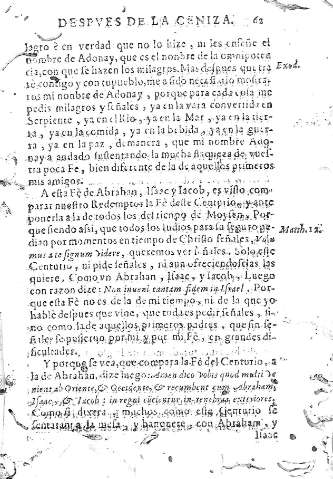 DESPVES DE LA CENIZA. 62
lagro è en verdad que no lo hize, ni les enseñe el
nombre de Adonay, que es el nonbre de la omnipoten
cia, con que se hazen los milagros. Mas despues que tra
to contigo y con tu pueblo, me a sido necessario mostra
ros mi nonbre de Adonay, porque para cada cosa me
pedis milagros y señales, ya en la vara convertida en
Serpiente, ya en el Rio, ya en la Mar, ya en la tier-
ra, ya en la comida, ya en la bebida, ya en la guer-
ra, ya en la paz, de manera, que mi nombre Ado-
nay a andado sustentando la mucha flaqueza de vues-
tra poca Fe, bien diferente de la de aquellos primeros
mis amigos.
A esta Fè de Abrahan, Isaac y Iacob, es visto com-
parar nuestro Redemptor la Fè deste Centurio, y ante
ponerla a la de todos los del tiempo de Moysen. Por-
que siendo assi, que todos los Iudios para su seguro pe-
dian por momentos en tiempo de Christo señales, Volu
mus a te signum videre, queremos ver señales. Solo este
Centurio, ni pide señales, ni aun ofreciendoselas las
quiere. Como vn Abrahan, Isaac, y Iacob. Luego
con razon dize: Non inveni tantam fidem in Israel, Por-
que esta Fè no es de la de mi tiempo, ni de la que yo
hable despues que vine, que toda es pedir señales, si-
no como la de aquellos primeros padres, que sin se-
ñales se pusieron por mi y por mi Fè, en grandes di-
ficultades.
Y porque se vea, que compara la Fè del Centurio, a
la de Abrahan, dize luego: Amen dico vobis quod multi ve
nient ab Oriente, & Occidente, & recumbent cum Abraham,
Isaac, & Iacob: in regni eijcientur in tenebras exteriores.
Como si dixera, muchos como este Centurio se
sentaran a la mesa, y banquete con Abraham, y
Isaac
Exod.
Matth. 12.